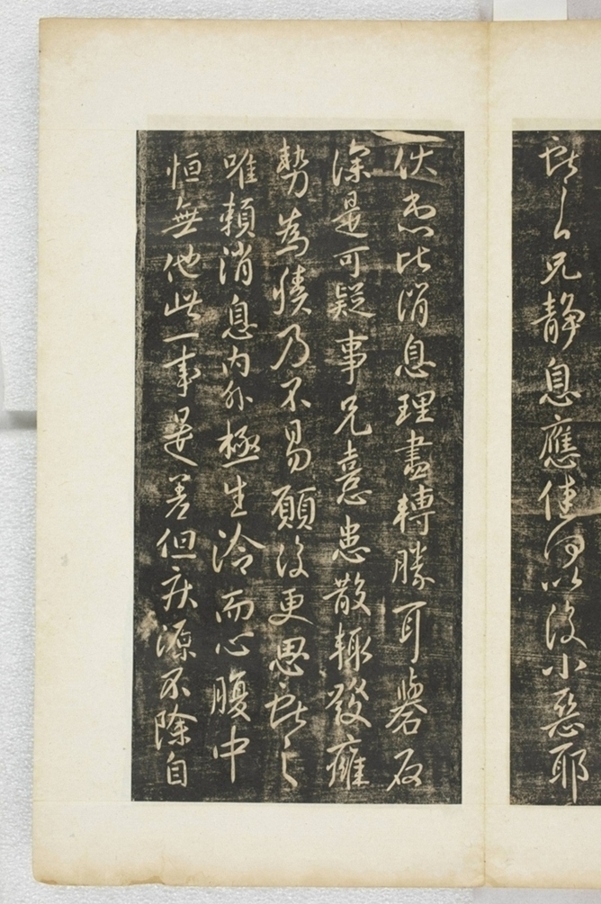 獻之白兄靜息應佳何以復小惡耶
伏想比消息理盡轉勝耳礜石
深是可疑事兄憙患散輒發癰
勢為積乃不易願復更思獻之
唯賴消息內外極生冷而心腹中
恒無他此一事是差但疾源不除自